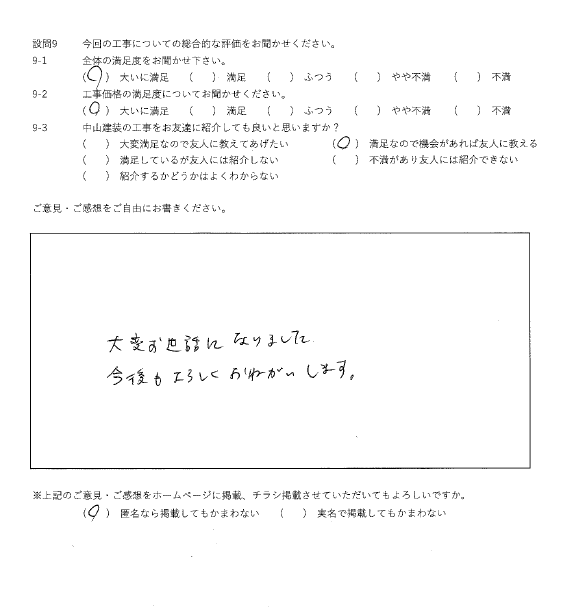 設問9 今回の工事についての総合的な評価をお聞かせください。
9-1 全体の満足度をお聞かせ下さい。
(○) 大いに満足 ( ) 満足 ( ) ふつう ( ) やや不満 ( ) 不満
9-2 工事価格の満足度についてお聞かせください。
(○) 大いに満足 ( ) 満足 ( ) ふつう ( ) やや不満 ( ) 不満
9-3 中山建装の工事をお友達に紹介しても良いと思いますか？
( ) 大変満足なので友人に教えてあげたい (○) 満足なので機会があれば友人に教える
( ) 満足しているが友人には紹介しない ( ) 不満があり友人には紹介できない
( ) 紹介するかどうかはよくわからない
ご意見・ご感想をご自由にお書きください。
大変お世話になりました
今後もよろしくおねがいします。
※上記のご意見・ご感想をホームページに掲載、チラシ掲載させていただいてもよろしいですか。
(○) 匿名なら掲載してもかまわない ( ) 実名で掲載してもかまわない